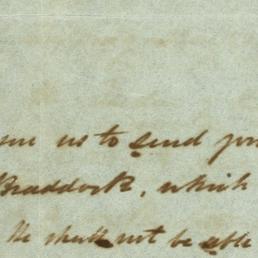 us to send you
Braddock, which
He shall not be able